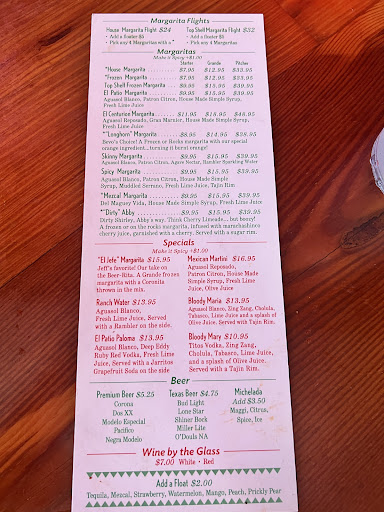 Margarita Flights
House Margarita Flight $24 Top Shelf Margarita Flight $32
· Add a floater $5 · Add a floater $5
· Pick any 4 Margaritas with a * · Pick any 4 Margaritas
Margaritas
Make it Spicy +$1.00
Starter Grande Pitcher
*House Margarita $7.95 $12.95 $33.95
*Frozen Margarita $7.95 $12.95 $33.95
Top Shelf Frozen Margarita $9.95 $15.95 $39.95
El Patio Margarita $9.95 $15.95 $39.95
Aguasol Blanco, Patron Citron, House Made Simple Syrup,
Fresh Lime Juice
El Centurion Margarita $11.95 $18.95 $46.95
Aguasol Reposado, Gran Marnier, House Made Simple Syrup,
Fresh Lime Juice
*"Longhorn" Margarita $8.95 $14.95 $38.95
Bevo's Choice! A Frozen or Rocks margarita with our special
orange ingredient...turning it burnt orange!
Skinny Margarita $9.95 $15.95 $39.95
Aguasol Blanco, Patron Citron, Agave Nectar, Rambler Sparkling Water
Spicy Margarita $9.95 $15.95 $39.95
Aguasol Blanco, Patron Citron, House Made Simple
Syrup, Muddled Serrano, Fresh Lime Juice, Tajin Rim
*Mezcal Margarita $9.95 $15.95 $39.95
Del Maguey Vida, House Made Simple Syrup, Fresh Lime Juice
*"Dirty" Abby $9.95 $15.95 $39.95
Dirty Shirley, Abby's way. Think Cherry Limeade... but boozy!
A frozen or on the rocks margarita, infused with maraschino
cherry juice, garnished with a cherry. Served with a sugar rim.
Specials
Make it Spicy +$1.00
"El Jefe" Margarita $15.95
Jeff's favorite! Our take on
the Beer-Rita. A Grande frozen
margarita with a Coronita
thrown in the mix.
Mexican Martini $16.95
Aguasol Reposado,
Patron Citron, House Made
Simple Syrup, Fresh Lime
Juice, Olive Juice
Ranch Water $13.95
Aguasol Blanco,
Fresh Lime Juice, Served
with a Rambler on the side.
Bloody Maria $13.95
Aguasol Blanco, Zing Zang, Cholula,
Tabasco, Lime Juice and a splash of
Olive Juice. Served with Tajin Rim.
El Patio Paloma $13.95
Aguasol Blanco, Deep Eddy
Ruby Red Vodka, Fresh Lime
Juice, Served with a Jarritos
Grapefruit Soda on the side
Bloody Mary $10.95
Titos Vodka, Zing Zang,
Cholula, Tabasco, Lime Juice,
and a splash of Olive Juice.
Served with a Tajin Rim.
Beer
Premium Beer $5.25
Corona
Dos XX
Modelo Especial
Pacifico
Negra Modelo
Texas Beer $4.75
Bud Light
Lone Star
Shiner Bock
Miller Lite
O'Douls NA
Michelada
Add $3.50
Maggi, Citrus,
Spice, Ice
Wine by the Glass
$7.00 White · Red
Add a Float $2.00
Tequila, Mezcal, Strawberry, Watermelon, Mango, Peach, Prickly Pear